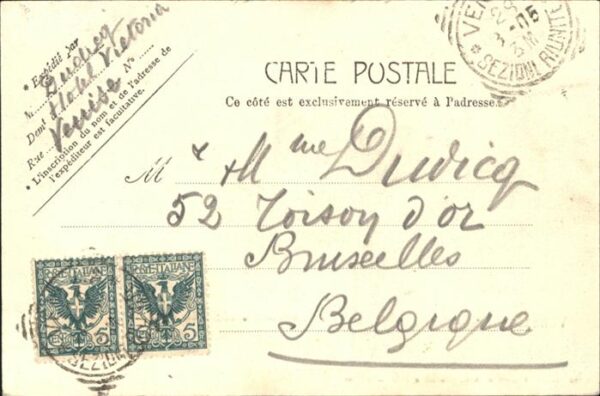 * Expédié par
M. Duvicq
Dent Hotel Victoria
Rue Venise N°
* L'inscription du nom et de l'adresse de
l'expéditeur est facultative.
VEN
3-05
* SEZIONI RIUNITE
CARTE POSTALE
Ce côté est exclusivement réservé à l'adresse.
M r & Mme Duvicq
52 Toison d'or
Bruxelles
Belgique
POSTE·ITALIANE
CENT 5
POSTE·ITALIANE
CENT 5
SEZIONI